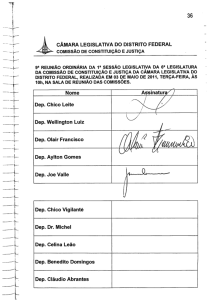 36
CÂMARA LEGISLATIVA DO DISTRITO FEDERAL
COMISSÃO DE CONSTITUIÇÃO E JUSTIÇA
9ª REUNIÃO ORDINÁRIA DA 1ª SESSÃO LEGISLATIVA DA 6ª LEGISLATURA
DA COMISSÃO DE CONSTITUIÇÃO E JUSTIÇA DA CÂMARA LEGISLATIVA DO
DISTRITO FEDERAL, REALIZADA EM 03 DE MAIO DE 2011, TERÇA-FEIRA, ÀS
10h, NA SALA DE REUNIÃO DAS COMISSÕES.
Nome Assinatura
Dep. Chico Leite
Dep. Wellington Luiz
Dep. Olair Francisco
Dep. Aylton Gomes
Dep. Joe Valle
Dep. Chico Vigilante
Dep. Dr. Michel
Dep. Celina Leão
Dep. Benedito Domingos
Dep. Cláudio Abrantes